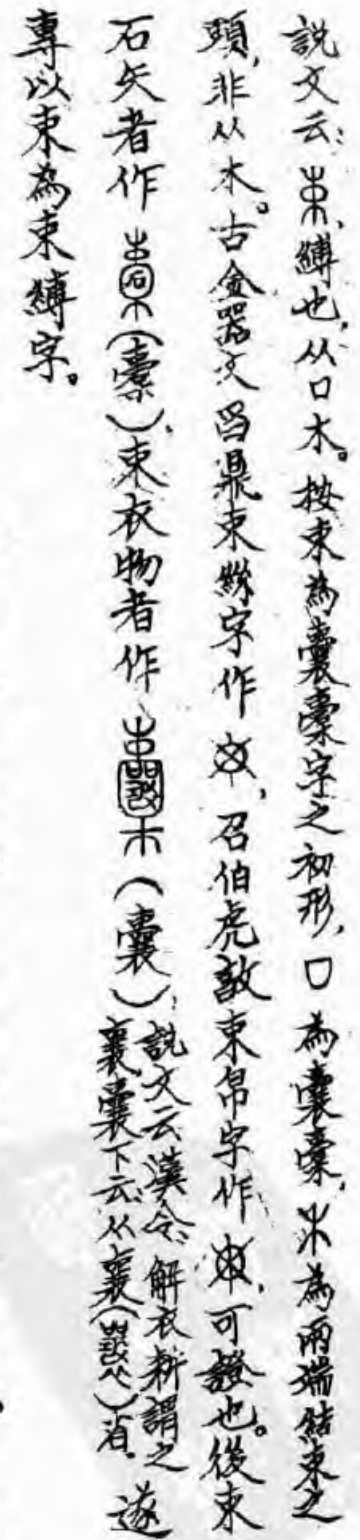 説文云：束，縛也，从口木。按束為囊橐字之初形，口為囊橐，木為兩端結束之
頭，非从木。古金器文曶鼎束絲字作，召伯虎敦束帛字作，可證也。後束
石矢者作（橐），束衣物者作（囊），説文云漢令，解衣耕謂之
襄囊下云，从襄省。遂
專以束為束縛字。